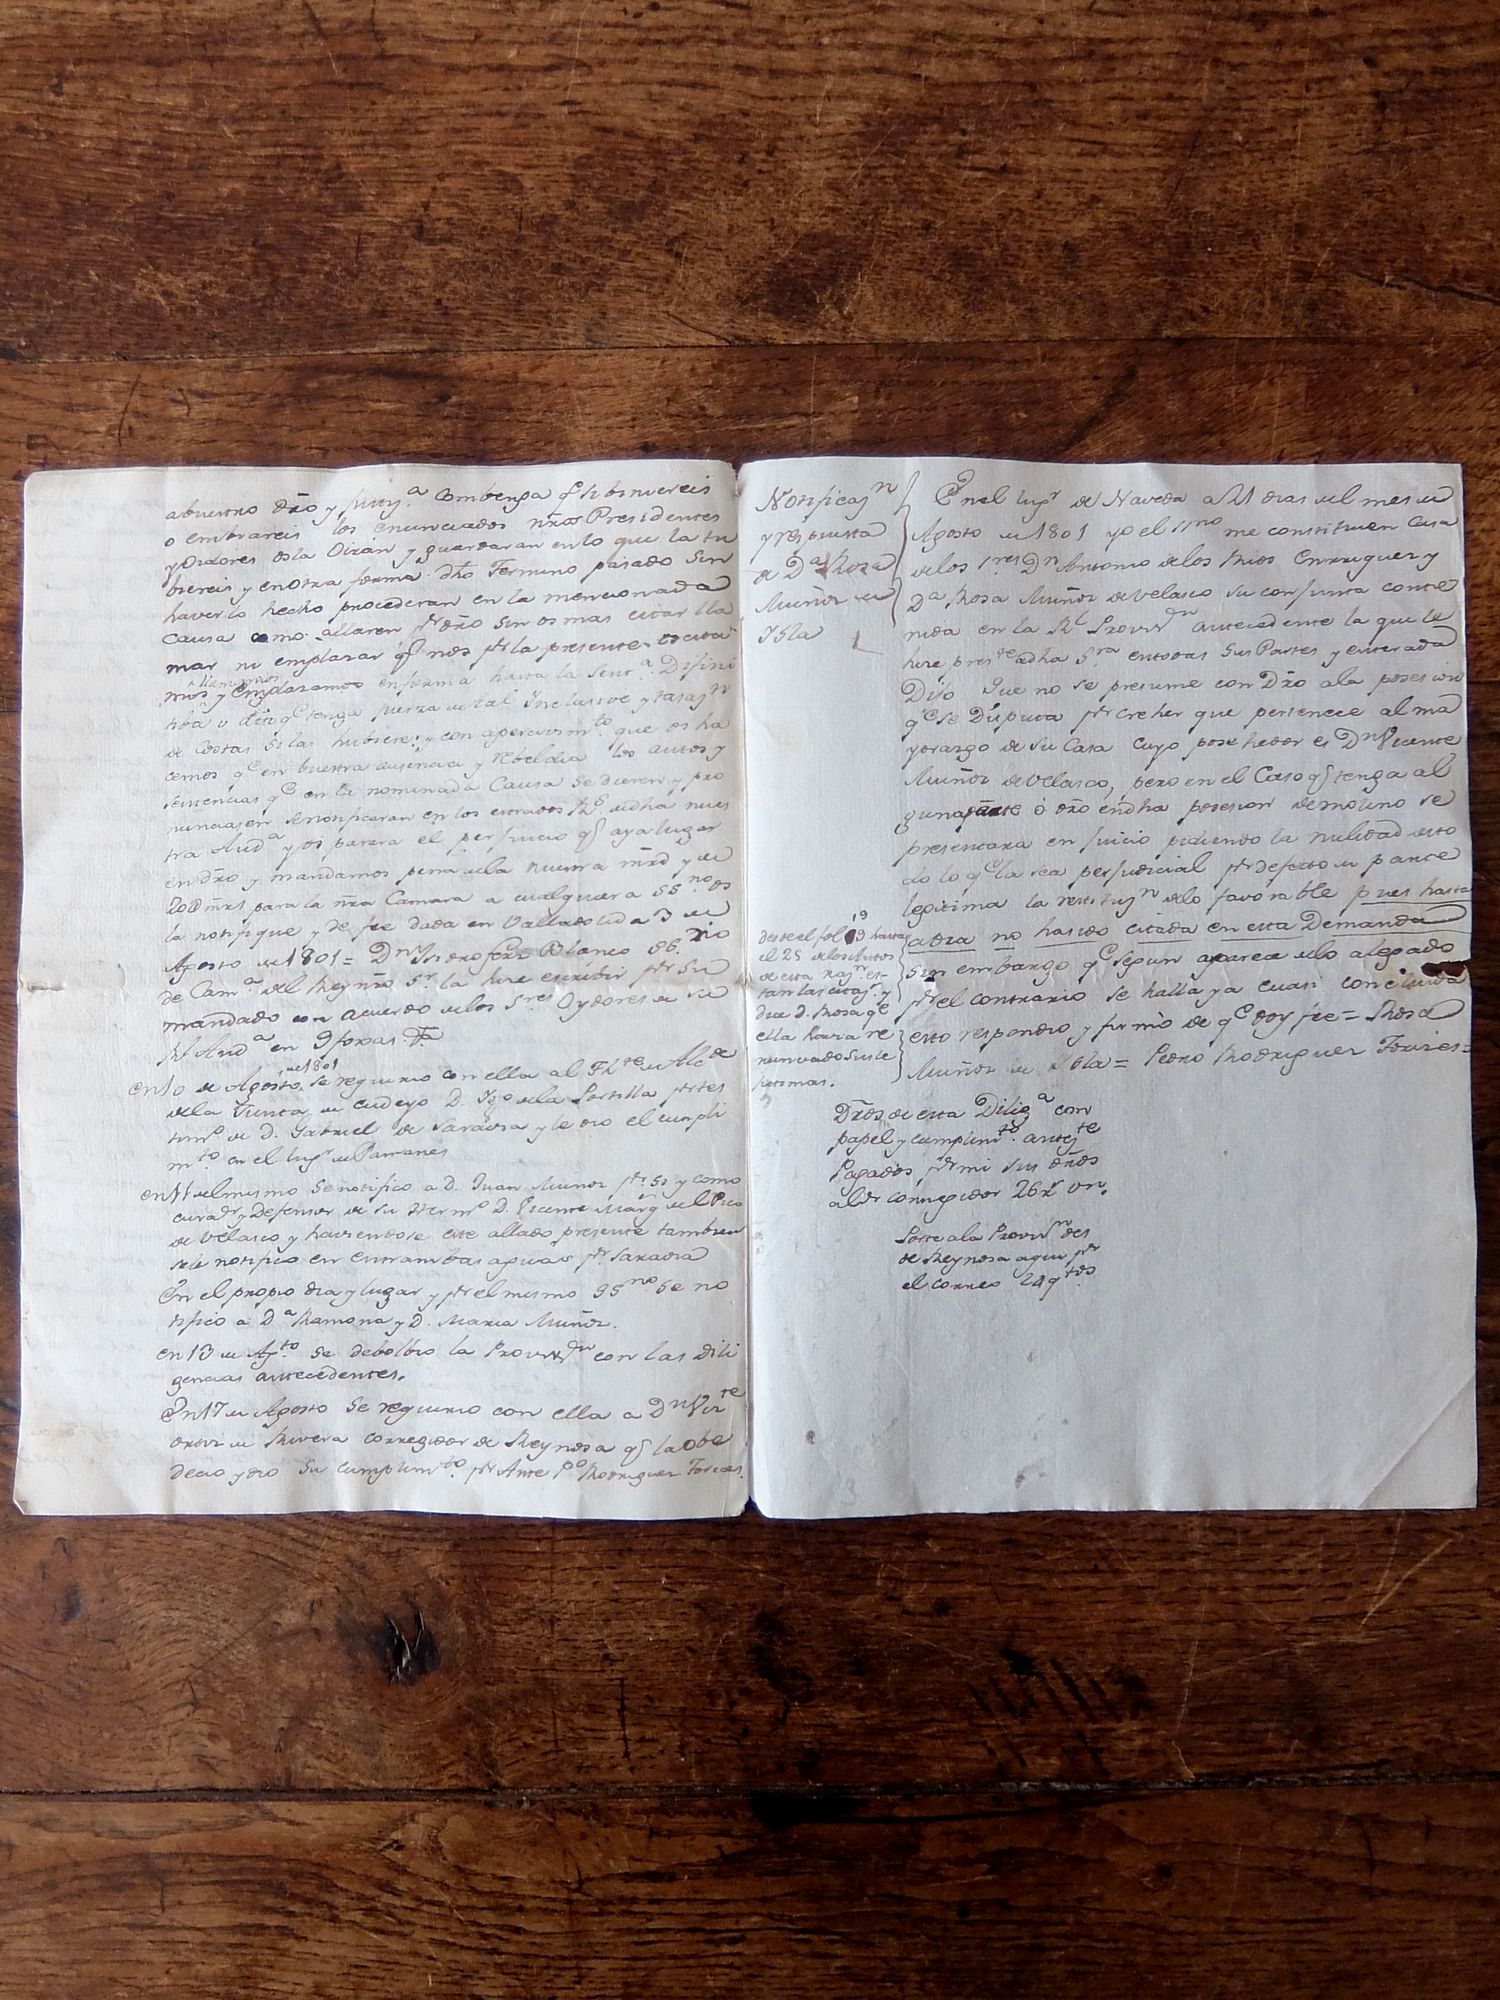 abuestro dro y justj.ª combenga q.e si biniereis
o embiareis los enunciados nros Presidentes
y Oidores os la Oirán y guardaran en lo que la tu
biereis y en otra forma dho Termino pasado sin
haverlo hecho procederan en la mencionada
Causa como allaren p.r dro sin os mas citar lla
mar ni emplazar q.e nos p.r la presente os cita
mos llamamos y emplazamos en forma hasta la Sent.ª Difini
tiba o dia q.e tenga fuerza de tal Inclusive y tasaz.n
de Costas si las hubiere; y con apercivim.to que os ha
cemos q.e en buestra ausencia y rebeldia los autos y
sentencias q.e en la nominada Causa se dieren y pro
nunciasen se notificaran en los estrados R.s de dha nues
tra Aud.ª y os parara el perjuicio q.e aya lugar
en dro y mandamos pena de la nuestra mrd y de
20@ mrs para la nra Camara a cualquiera SS.no os
la notifique y de fee dada en Valladolid a 3 de
Agosto de 1801 = D.n Isidro Ferz Blanco SS.rio
de Cam.ª del Rey nro S.r la hize escribir p.r su
mandado con acuerdo de los S.res Oydores de su
R.l Aud.ª en 9 foxas
en 10 de Agosto de 1801 se requirio con ella al Th.te de Alc.de
de la Junta de cudeyo D. de la Portilla p.r tes
tim.º de D. Gabriel de Saravia y le dio el cumpli
m.to en el lug.r de Pamanes
en 11 del mismo se notifico a D. Juan Muñoz p.r si y como
curad.r y Defensor de su Herm.º D. Vicente Marq.s del Pico
de Velasco y haviendose este allado presente tambien
se le notifico en entrambas aguas p.r Saravia
En el propio dia y lugar y p.r el mismo SS.no se no
tifico a D.ª Ramona y D. Maria Muñoz.
en 13 de Ag.to se debolbio la Provis.n con las dili
gencias antecedentes.
En 17 de Agosto se requirio con ella a D.n Viz.te
Ortiz de Rivera corregidor de Reynosa q.e la obe
decio y dio su cumplim.to p.r Ante P.º Rodriguez Torices.
Notificaz.n
y respuesta
de D.ª Rosa
Muñoz de
Ysla
En el lug.r de Naveda a 21 dias del mes de
Agosto de 1801 yo el SS.no me constitui en casa
de los S.res D.n Antonio de los Rios Enrriquez y
D.ª Rosa Muñoz de Velasco su conjunta conte
nida en la R.l Provis.n antecedente la que le
hize pres.te a dha S.ra en todas sus Partes y enterada
Dijo Que no se presume con Dro a la posesion
q.e se Disputa p.r creher que pertenece al ma
yorazgo de su Casa cuyo posehedor es D.n Vicente
Muñoz de Velasco, pero en el Caso q.e tenga al
guna parte ó dro en dha posesion de molino se
presentara en juicio pidiendo la nulidad de to
do lo q.e la sea perjudicial p.r defecto de parte
legitima la restituz.n de lo favorable pues hasta
aora no ha sido citada en esta Demanda
sin embargo q.e segun aparece de lo alegado
p.r el contrario se halla ya cuasi concluida
esto respondio y firmò de q.e doy fee = Rosa
Muñoz de Isla = Pedro Rodriguez Torizes =
desde el fol. 19 hasta
el 25 de los Autos
de esta raz.n es-
tan las citaz.s y
dice D. Rosa q.e
ella
Dros de esta Dilig.ª con
papel y cumplim.to ante
Pagados p.r mi sus dros
al S.r corregidor 26 r.s vn.
Porte a la Provis.n des
de Reynosa aqui p.r
el correo 24 q.tos